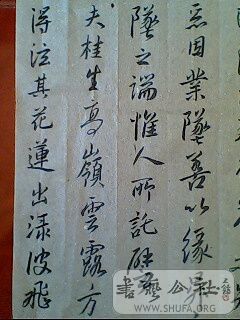 惡因業墜善以緣昇
墜之端惟人所託譬
夫桂生高嶺雲露方
得泫其花蓮出渌波飛
書藝公社
WWW.SHUFA.ORG